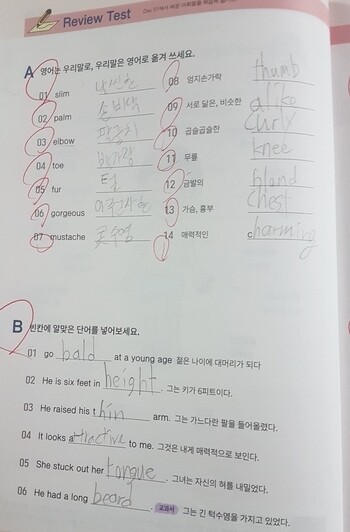 Review Test
Day 01에서 배운
A 영어는 우리말로, 우리말은 영어로 옮겨 쓰세요.
01 slim 날씬한
02 palm 손바닥
03 elbow 팔꿈치
04 toe 발가락
05 fur 털
06 gorgeous 아주
07 mustache 콧수염
08 엄지손가락 thumb
09 서로 닮은, 비슷한 alike
10 곱슬곱슬한 curly
11 무릎 knee
12 금발의 blond
13 가슴, 흉부 chest
14 매력적인 charming
B 빈칸에 알맞은 단어를 넣어보세요.
01 go bald at a young age 젊은 나이에 대머리가 되다
02 He is six feet in height. 그는 키가 6피트이다.
03 He raised his thin arm. 그는 가느다란 팔을 들어올렸다.
04 It looks attractive to me. 그것은 내게 매력적으로 보인다.
05 She stuck out her tongue. 그녀는 자신의 혀를 내밀었다.
06 He had a long beard. 교과서 그는 긴 턱수염을 가지고 있었다.